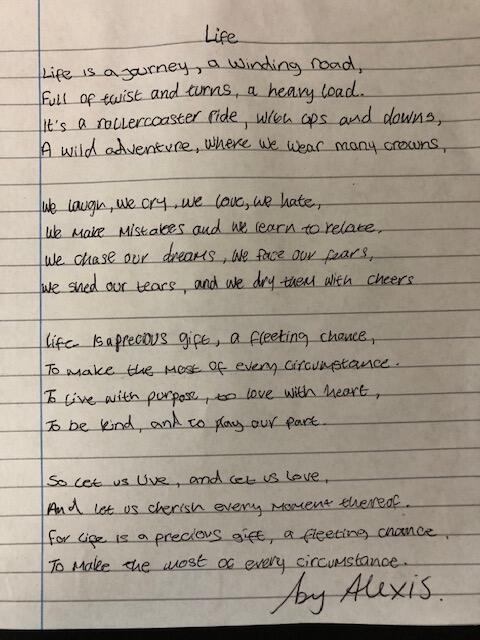 Life
Life is a journey, a winding road,
Full of twist and turns, a heavy load.
It's a rollercoaster ride, with ups and downs,
A wild adventure, where we wear many crowns,
We laugh, we cry, we love, we hate,
We make mistakes and we learn to relate.
We chase our dreams, we face our fears,
We shed our tears, and we dry them with cheers
Life is a precious gift, a fleeting chance,
To make the most of every circumstance.
To live with purpose, to love with heart,
To be kind, and to play our part.
So let us live, and let us love,
And let us cherish every moment thereof.
For life is a precious gift, a fleeting chance,
To make the most of every circumstance.
by Alexis.